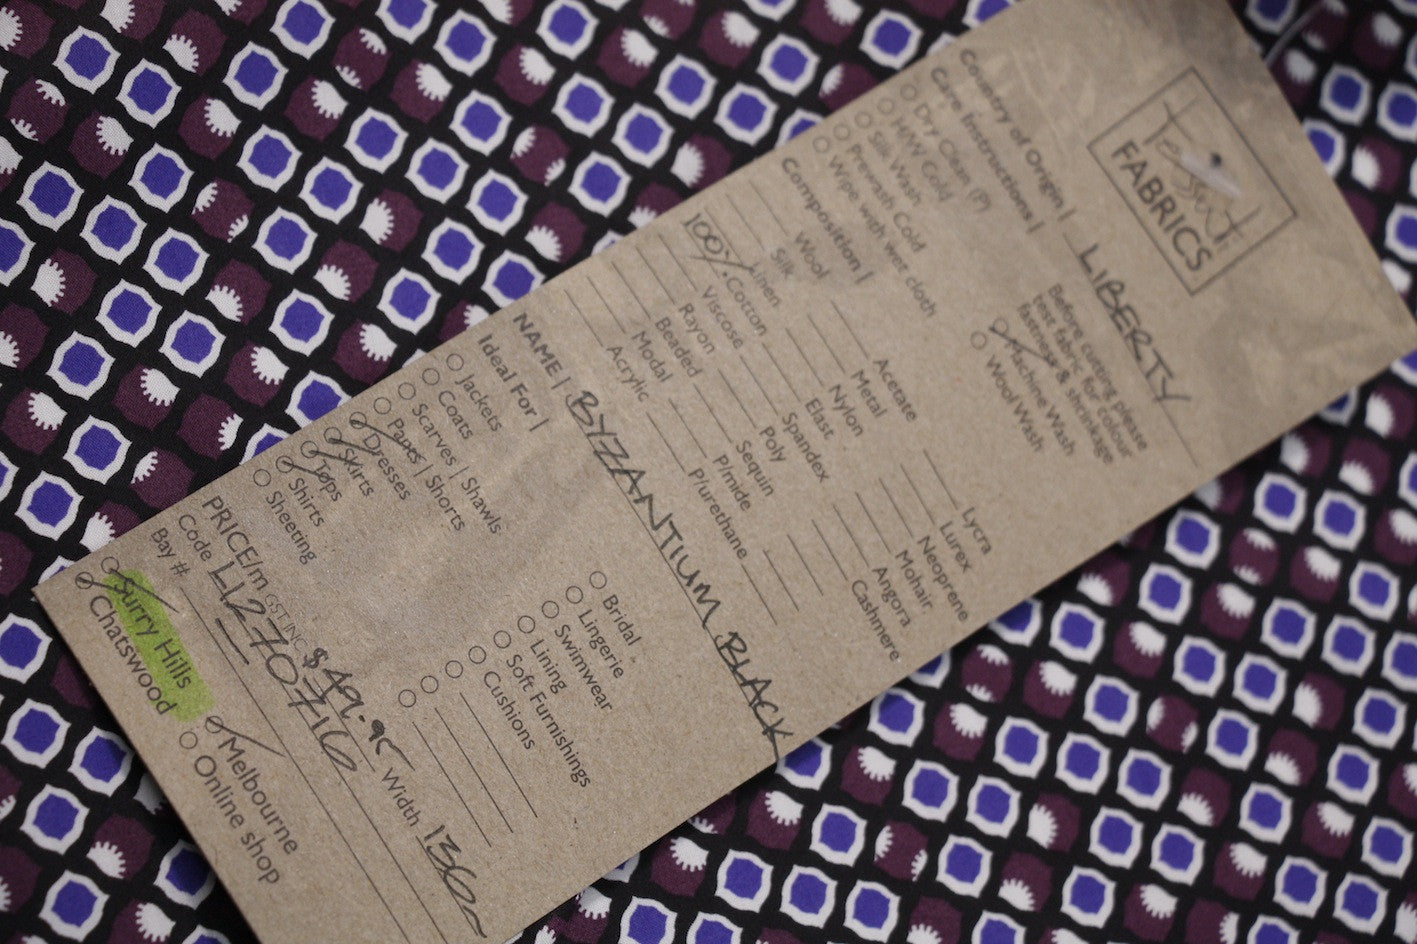 Tessuti
FABRICS
Country of Origin | LIBERTY
Care Instructions |
Dry Clean (P)
HW Cold
Silk Wash
Prewash Cold
Wipe with wet cloth
Before cutting please
test fabric for colour
fastness & shrinkage
Machine Wash
Wool Wash
Composition |
Wool
Silk
Linen
100% Cotton
Viscose
Rayon
Beaded
Modal
Acrylic
Acetate
Metal
Nylon
Elast
Spandex
Poly
Sequin
P/mide
P/urethane
Lycra
Lurex
Neoprene
Mohair
Angora
Cashmere
NAME | BYZANTIUM BLACK
Ideal For |
Jackets
Coats
Scarves | Shawls
Pants | Shorts
Dresses
Skirts
Tops
Shirts
Sheeting
Bridal
Lingerie
Swimwear
Lining
Soft Furnishings
Cushions
PRICE/m GST INC $49.95 Width 136
Code L12707116
Bay #
Surry Hills
Chatswood
Melbourne
Online shop